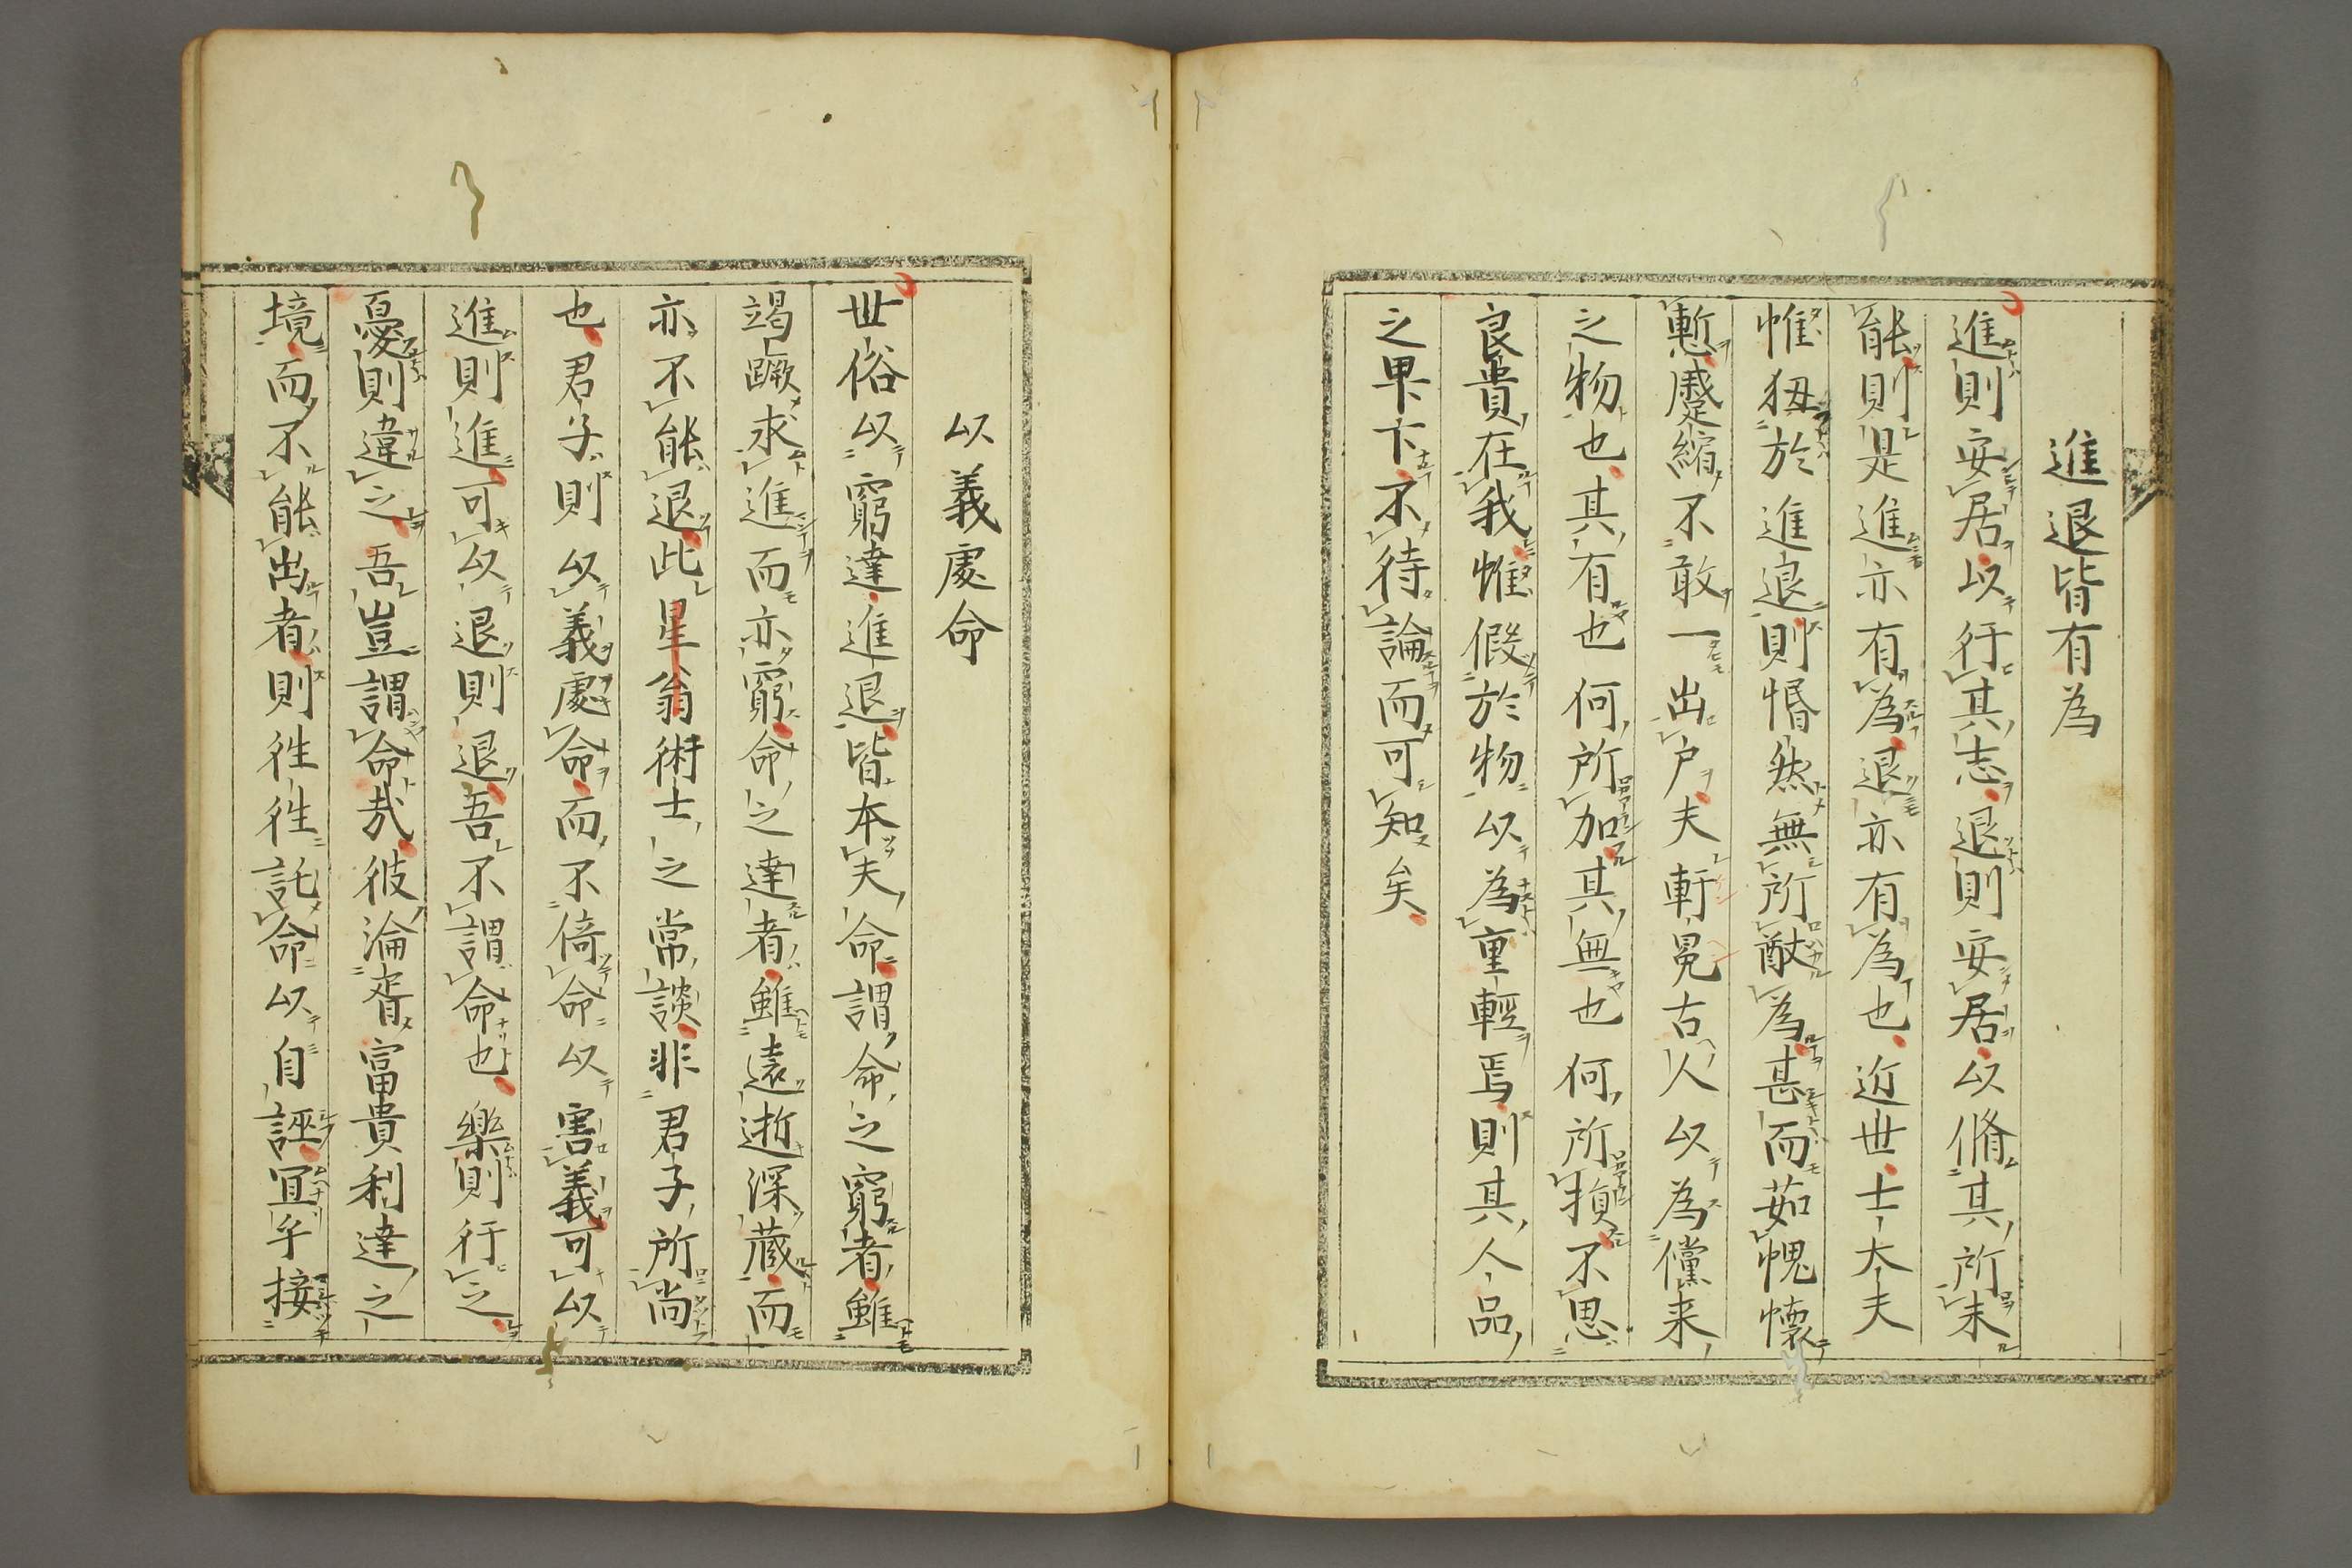 進退皆有為
進則安居以行其志退則安居以脩其所未
能則是進亦有為退亦有為也近世士大夫
惟狃於進退則惛然無所猷為甚而茹愧懐
慙蹙縮不敢一出戸夫軒冕古人以為儻来
之物也其有也何所加其無也何所損不思
良貴在我惟假於物以為重輕焉則其人品
之卑下不待論而可知矣
以義處命
世俗以窮達進退皆本夫命謂命之窮者雖
竭蹶求進而亦窮命之達者雖遠逝深蔵而
亦不能退此星翁術士之常談非君子所尚
也君子則以義處命而不倚命以害義可以
進則進可以退則退吾不謂命也樂則行之
憂則違之吾豈謂命哉彼淪胥富貴利達之
境而不能出者則徃徃託命以自誣冝乎接